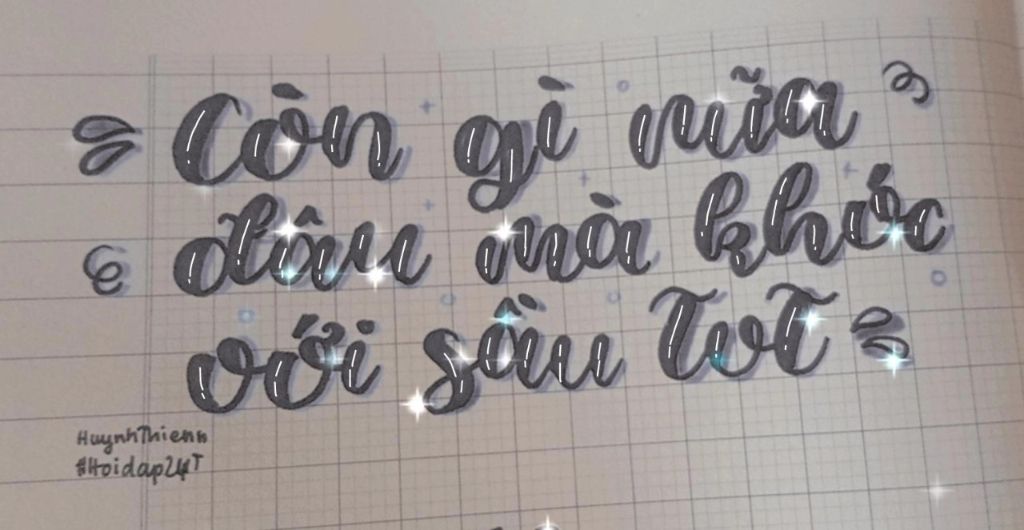 Còn gì nữa
đâu mà khóc
với sầu TvT
HuynhThienn
#Hoidap247